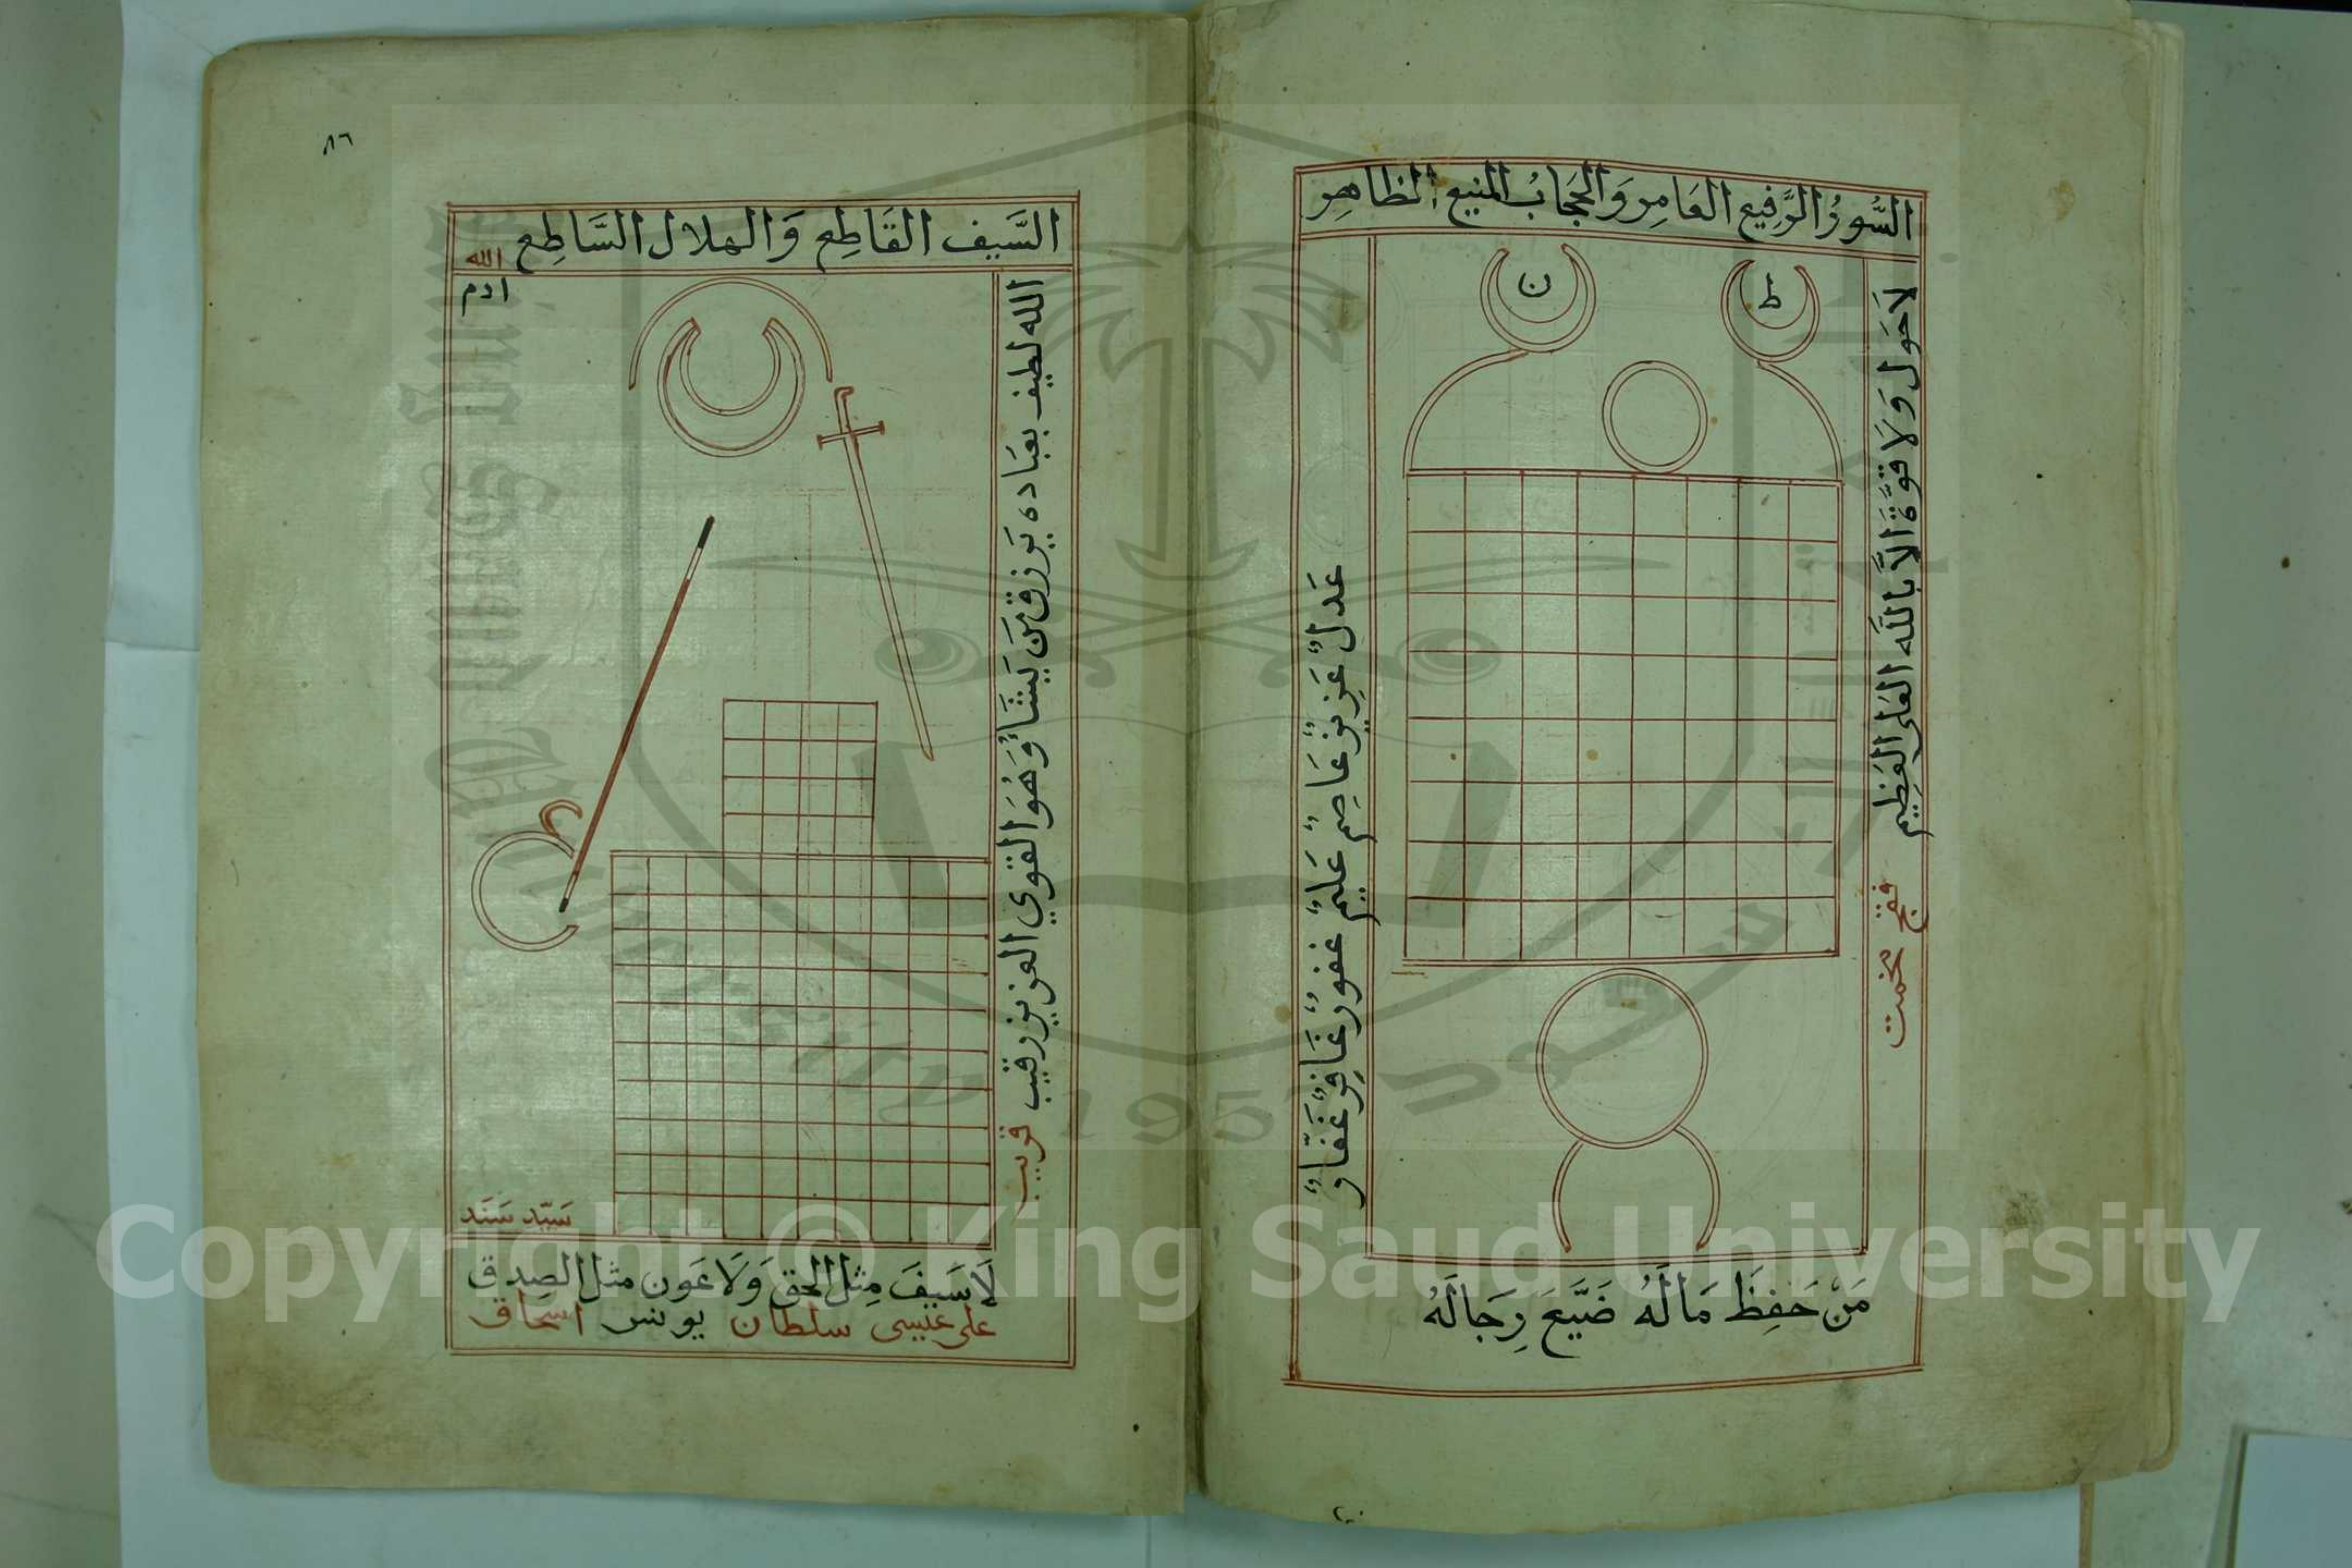 السُّورُ الرَّفِيعِ العَامِرِ وَالحِجَابُ المنيع الظاهِرِ
ط
ن
لاَحَول وَلَا قوَّةَ اِلاَّ بالله العَلى العَظِيم
فقج
عَدلٌ عَزِيزٌ عَاصِمٌ عَلِيمٌ غفورٌ غَافِرٌ غَفّارٌ
مَنْ حَفِظَ مَالَهُ ضَيَّعَ رِجَالَهُ
٨٦
السَّيف القَاطِع وَالهلال السَّاطِع
الله
ادم
الله لطيف بعبَاده يَرزق مَن يَشَاءُ وَهُوَ القوي العزيز رقيب قريب
سَيّد سَنَد
لَا سَيفَ مِثل الحق وَلَا عَون مثل الصِدق
على عيسى سلطان يونس اسحاق
Copyright © King Saud University
King Saud University
1957